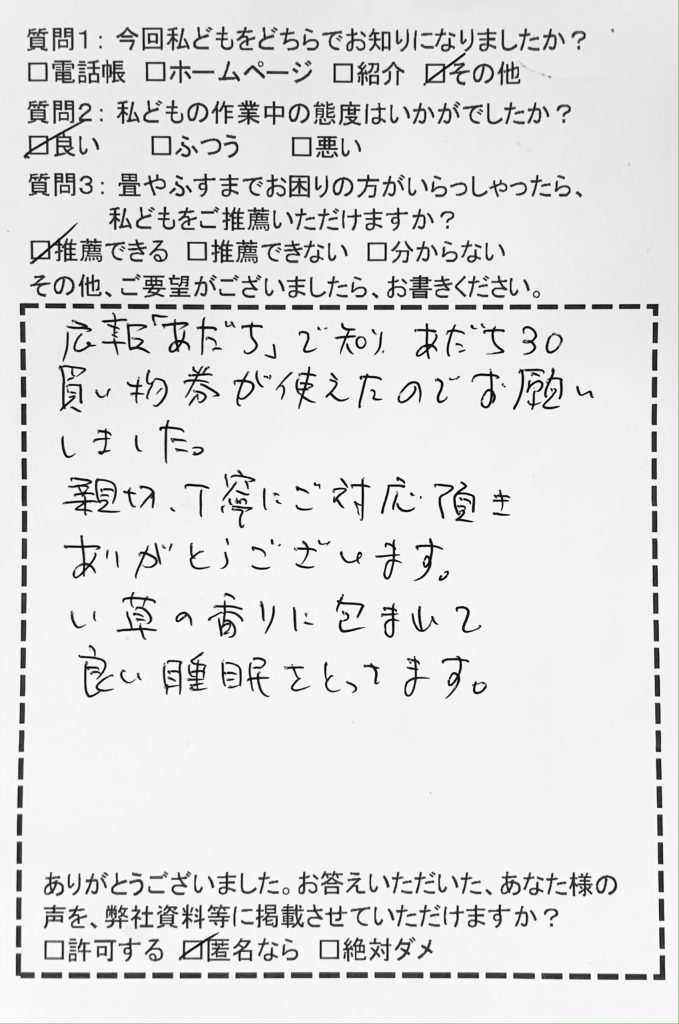 質問1：今回私どもをどちらでお知りになりましたか？
□電話帳 □ホームページ □紹介 ☑その他
質問2：私どもの作業中の態度はいかがでしたか？
☑良い □ふつう □悪い
質問3：畳やふすまでお困りの方がいらっしゃったら、
私どもをご推薦いただけますか？
☑推薦できる □推薦できない □分からない
その他、ご要望がございましたら、お書きください。
広報「あだち」で知り あだち30
買い物券が使えたのでお願い
しました。
親切、丁寧にご対応頂き
ありがとうございます。
い草の香りに包まれて
良い睡眠をとってます。
ありがとうございました。お答えいただいた、あなた様の
声を、弊社資料等に掲載させていただけますか？
□許可する ☑匿名なら □絶対ダメ